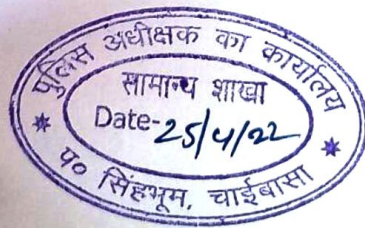 पुलिस अधीक्षक का कार्यालय
सामान्य शाखा
Date-25/4/22
* प० सिंहभूम, चाईबासा *